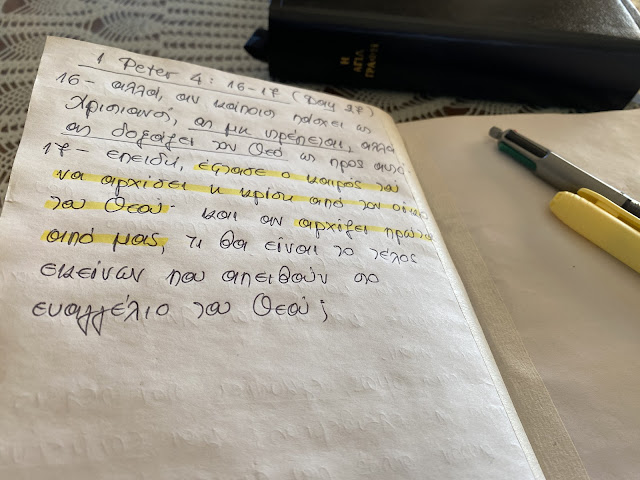 1 Peter 4: 16-17 (Day 27)
16- αλλά, αν κάποιος πάσχει ως
Χριστιανός, ας μη ντρέπεται, αλλά
ας δοξάζει τον Θεό ως προς αυτό.
17- επειδή, έφτασε ο καιρός του
να αρχίσει η κρίση από τον οίκο
του Θεού· και αν αρχίζει πρώτα
από μας, τι θα είναι το τέλος
εκείνων που απειθούν στο
ευαγγέλιο του Θεού;
Η
ΑΓΙΑ
ΓΡΑΦΗ